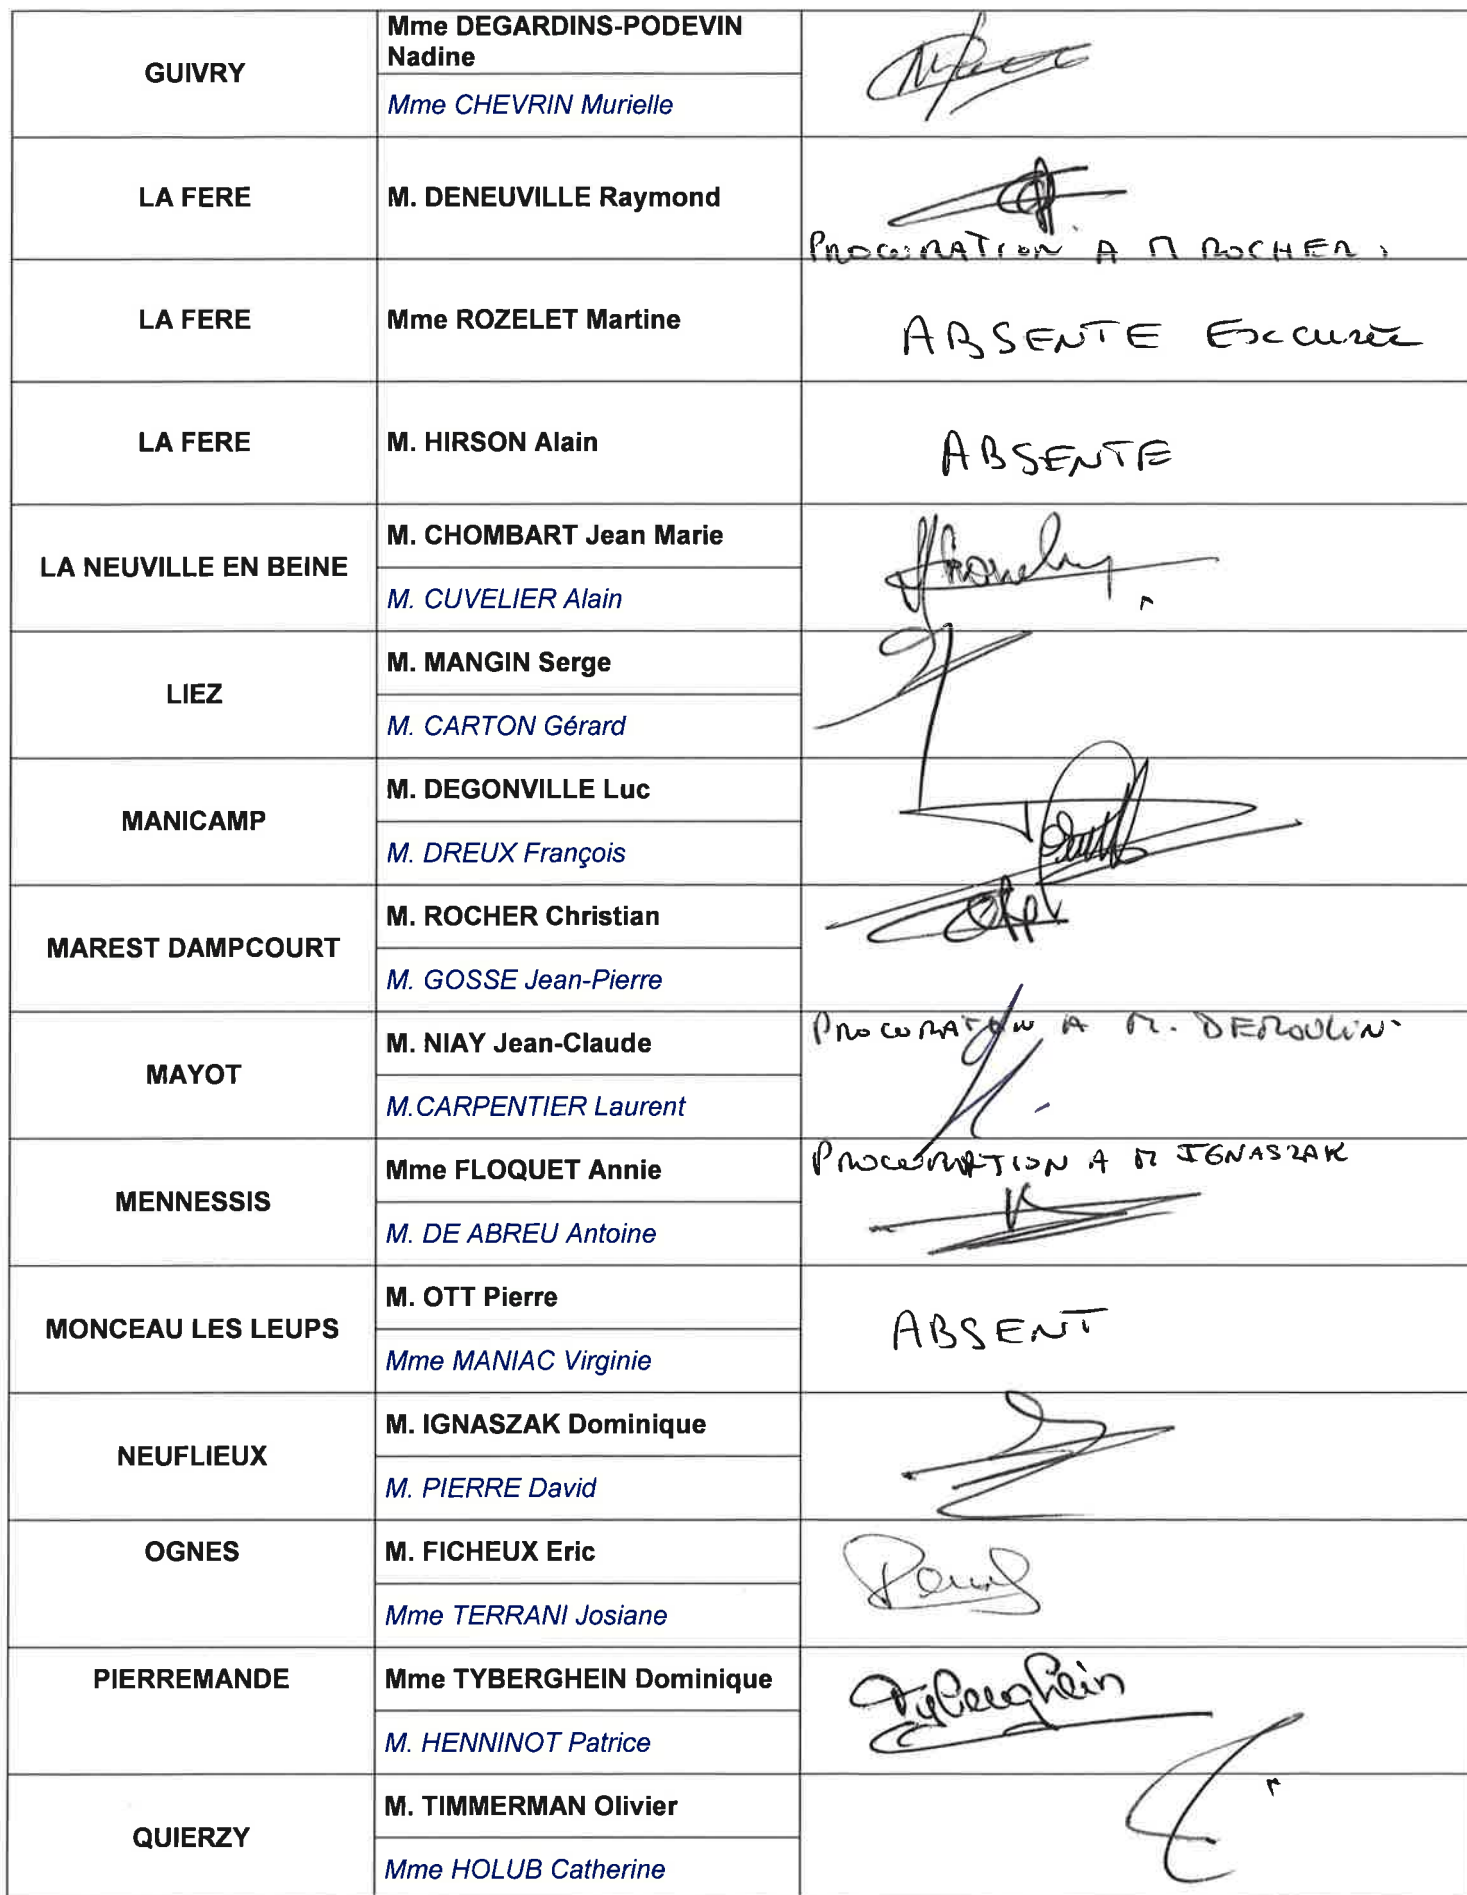 GUIVRY
Mme DEGARDINS-PODEVIN
Nadine
Mme CHEVRIN Murielle
LA FERE
M. DENEUVILLE Raymond
PROCURATION A M ROCHER.
LA FERE
Mme ROZELET Martine
ABSENTE Excusée
LA FERE
M. HIRSON Alain
ABSENTE
LA NEUVILLE EN BEINE
M. CHOMBART Jean Marie
M. CUVELIER Alain
LIEZ
M. MANGIN Serge
M. CARTON Gérard
MANICAMP
M. DEGONVILLE Luc
M. DREUX François
MAREST DAMPCOURT
M. ROCHER Christian
M. GOSSE Jean-Pierre
MAYOT
M. NIAY Jean-Claude
M.CARPENTIER Laurent
PROCURATION A M. DEMOULIN.
MENNESSIS
Mme FLOQUET Annie
M. DE ABREU Antoine
PROCURATION A M IGNASZAK
MONCEAU LES LEUPS
M. OTT Pierre
Mme MANIAC Virginie
ABSENT
NEUFLIEUX
M. IGNASZAK Dominique
M. PIERRE David
OGNES
M. FICHEUX Eric
Mme TERRANI Josiane
PIERREMANDE
Mme TYBERGHEIN Dominique
M. HENNINOT Patrice
Tyberghein
QUIERZY
M. TIMMERMAN Olivier
Mme HOLUB Catherine